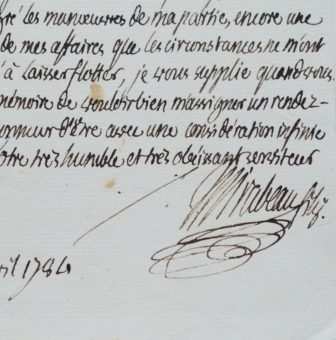 gré les manœuvres de ma partie, encore une
de mes affaires que les circonstances ne m'ont
à laisser flotter, je vous supplie quand vous
mémoire de vouloir bien m'assigner un rendez-
onneur d'être avec une considération infinie
otre très humble et très obéissant serviteur
Mirabeau fils
ril 1784